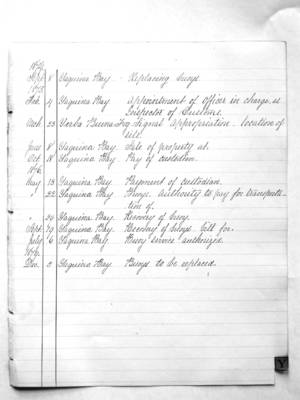 Sept. 8 Yaquina Bay. Replacing buoys.
Feb. 4 Yaquina Bay Appointment of officer in charge, as
Inspector of Customs.
Yerba Buena Fog Signal Appropriation. location of
site.
June 8 Yaquina Bay. Sale of property at.
Oct. 18 Yaquina Bay. Pay of custodian.
1876.
May 13 Yaquina Bay Payment of custodian.
" 22 Yaquina Bay Buoys. Authority to pay for transporta-
tion of.
" Yaquina Bay. Recovery of buoy.
Sept. 29 Yaquina Bay. Recovery of buoys. Bill for.
July 6 Yaquina Bay. Buoy service authorized.
Dec. Yaquina Bay Buoys to be replaced.
Y